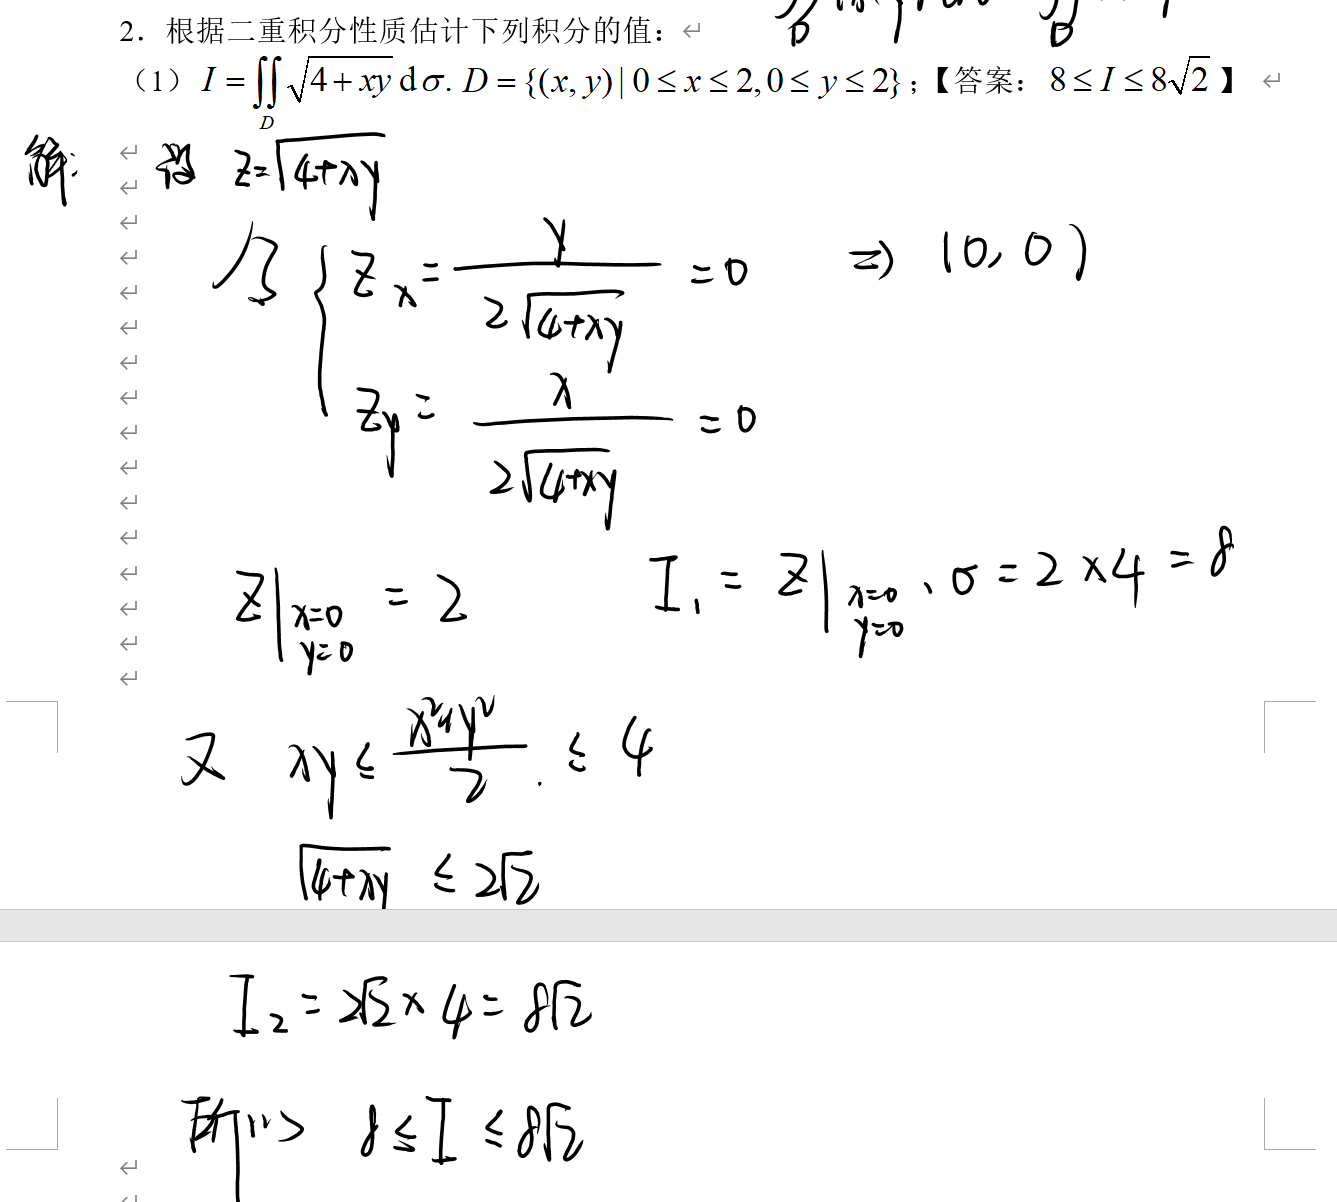 2．根据二重积分性质估计下列积分的值：
（1）I = ∬_D √(4+xy) dσ. D = {(x, y) | 0 ≤ x ≤ 2, 0 ≤ y ≤ 2}；【答案： 8 ≤ I ≤ 8√2 】
解: 设 z=√(4+xy)
令 { Z_x = y / (2√(4+xy)) = 0 => (0, 0)
Z_y = x / (2√(4+xy)) = 0
Z|_{x=0, y=0} = 2 I_1 = Z|_{x=0, y=0} · σ = 2 × 4 = 8
又 xy ≤ (x²+y²)/2 . ≤ 4
√(4+xy) ≤ 2√2
I_2 = 2√2 × 4 = 8√2
所以 8 ≤ I ≤ 8√2